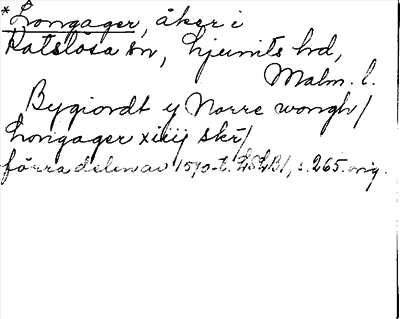 *Longager, åker i
Katslösa sn, Ljunits hd,
Malm. l.
Bygiordt y Norre wongh/
Longager xiiij skr/
förra delen av 1570-t. LSLB1, s. 265. orig.